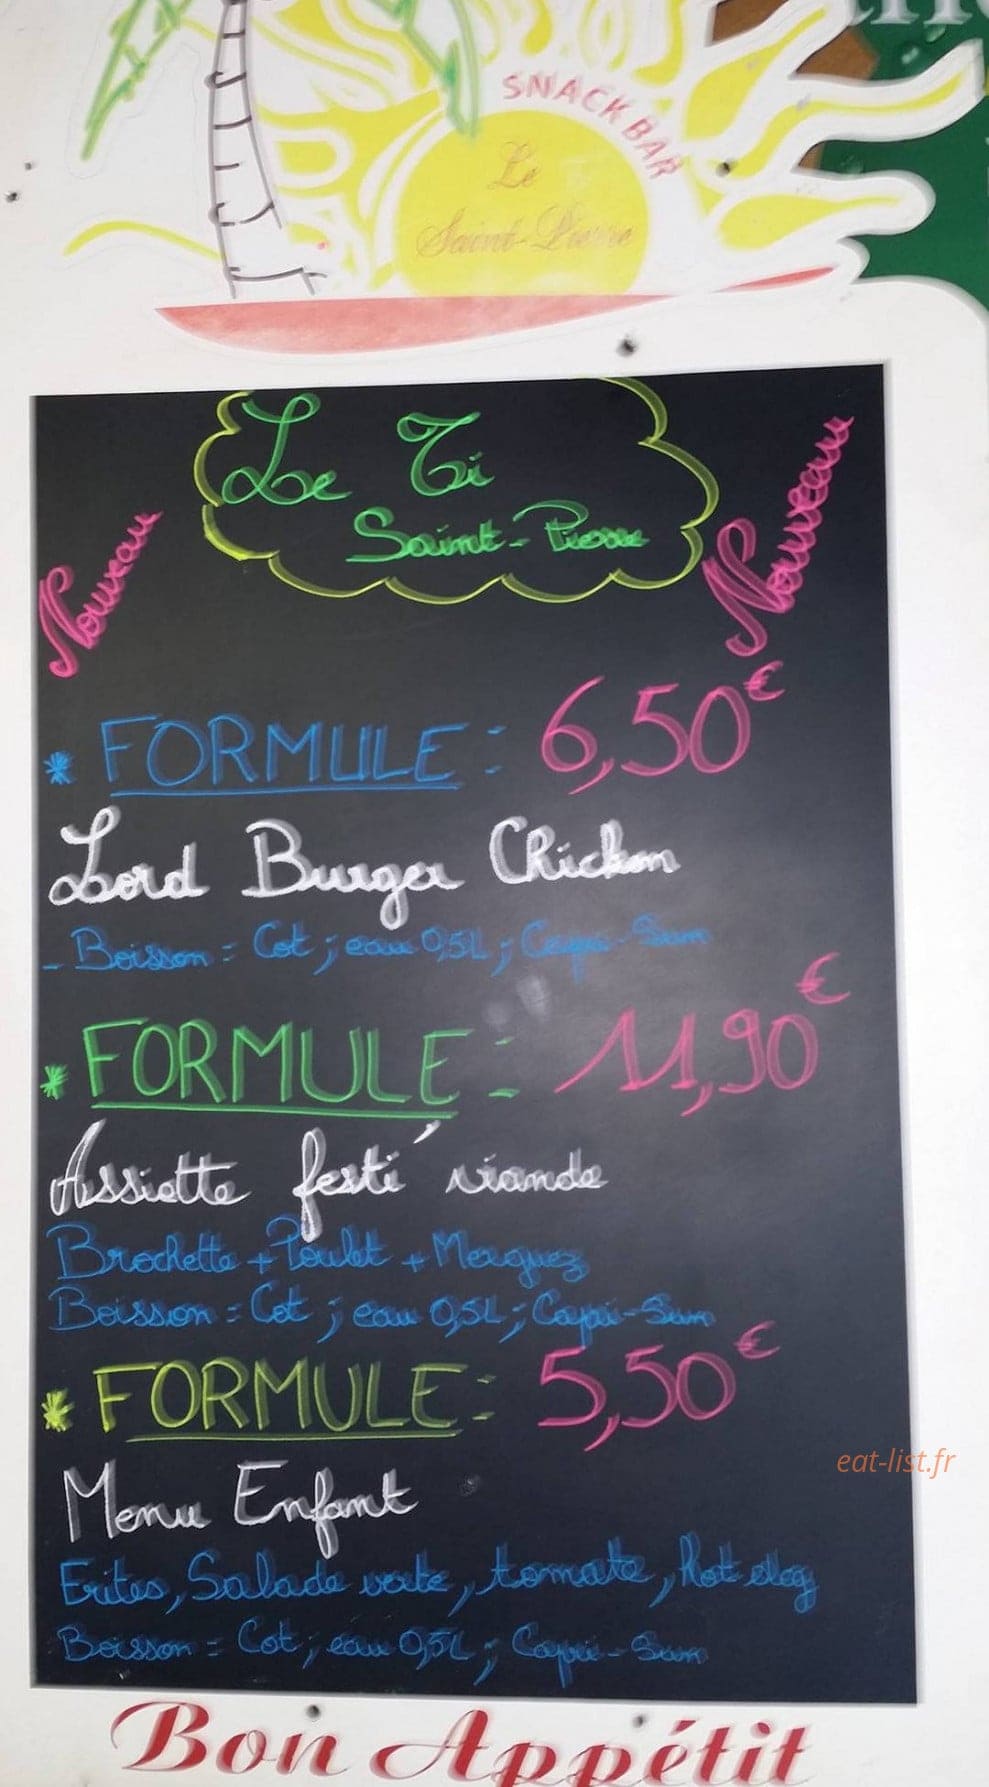 SNACK BAR
Le
Saint-Pierre
Le Ti
Saint-Pierre
Nouveau
Nouveau
* FORMULE : 6,50€
Lord Burger Chicken
- Boisson = Cot ; eau 0,5L ; Capri-Sun
* FORMULE : 11,90€
Assiette festi' viande
Brochette + Poulet + Merguez
Boisson = Cot ; eau 0,5L ; Capri-Sun
* FORMULE : 5,50€
Menu Enfant
Frites, Salade verte, tomate, Hot dog
Boisson = Cot ; eau 0,5L ; Capri-Sun
eat-list.fr
Bon Appétit